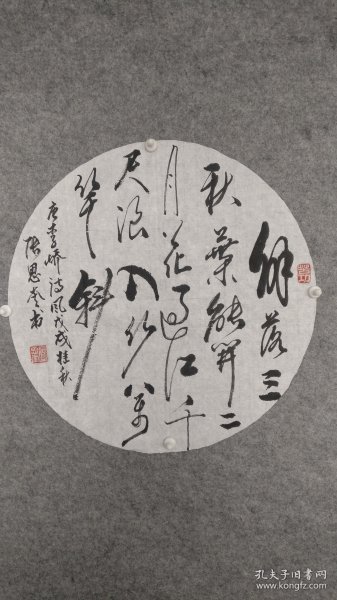 解落三
秋葉能開二
月花过江千
尺浪入竹万
竿斜
唐李嶠诗风戊戌桂秋
张恩书
孔夫子旧书网
www.kongfz.com